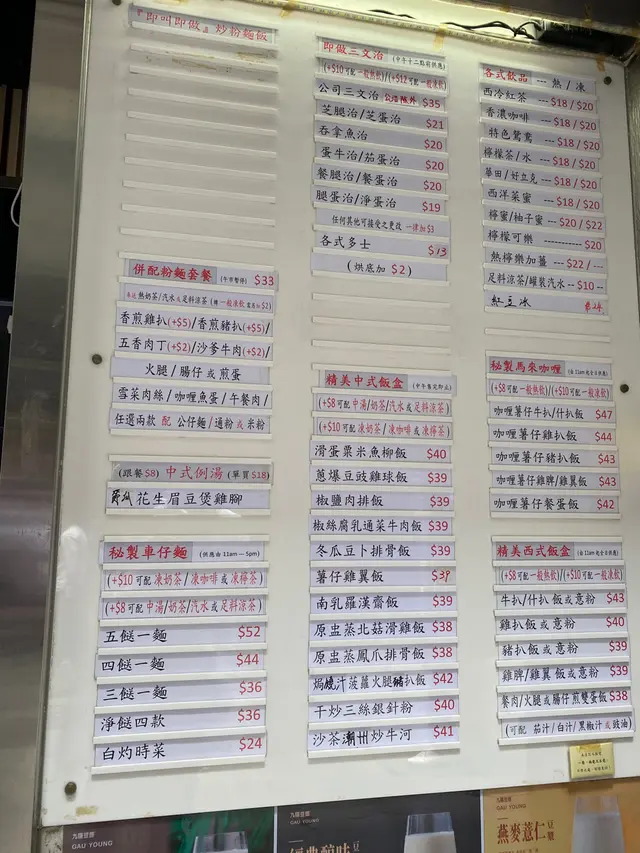 『即叫即做』炒粉麵飯
併配粉麵套餐 (午市暫停) $33
熱奶茶/汽水或足料涼茶
香煎雞扒(+$5)/香煎豬扒(+$5)/
五香肉丁(+$2)/沙爹牛肉(+$2)/
火腿/腸仔或煎蛋
雪菜肉絲/咖喱魚蛋/午餐肉/
任選兩款 配 公仔麵/通粉或米粉
(跟餐$8) 中式例湯 (單買$18)
花生眉豆煲雞腳
秘製車仔麵 (供應由11am—5pm)
(+$10可配凍奶茶/凍咖啡或凍檸茶)
(+$8可配中湯/奶茶/汽水或足料涼茶)
五餸一麵 $52
四餸一麵 $44
三餸一麵 $36
淨餸四款 $36
白灼時菜 $24
即做三文治 (中午十二點前供應)
(+$10可配一般熱飲)/(+$12可配一般凍飲)
公司三文治 公治除外 $35
芝腿治/芝蛋治 $21
吞拿魚治 $20
蛋牛治/茄蛋治 $20
餐腿治/餐蛋治 $20
腿蛋治/淨蛋治 $19
任何其他可接受之更改 一律加$3
各式多士 $13
(烘底加$2)
精美中式飯盒 (中午售完即止)
(+$8可配中湯/奶茶/汽水或足料涼茶)
(+$10可配凍奶茶/凍咖啡/凍檸茶)
滑蛋粟米魚柳飯 $40
蔥爆豆豉雞球飯 $39
椒鹽肉排飯 $39
椒絲腐乳通菜牛肉飯 $39
冬瓜豆卜排骨飯 $39
薯仔雞翼飯 $39
南乳羅漢齋飯 $39
原盅蒸北菇滑雞飯 $38
原盅蒸鳳爪排骨飯 $38
焗燒汁菠蘿火腿豬扒飯 $42
干炒三絲銀針粉 $40
沙茶潮州炒牛河 $41
各式飲品 --- 熱 / 凍
西冷紅茶 --- $18 / $20
香濃咖啡 --- $18 / $20
特色鴛鴦 --- $18 / $20
檸檬茶/水 --- $18 / $20
華田/好立克 --- $18 / $20
西洋菜蜜 --- $18 / $20
檸蜜/柚子蜜 --- $20 / $22
檸檬可樂 ---------- $20
熱檸樂加薑 --- $22 / ---
足料涼茶/罐裝汽水 -- $10 --
紅豆冰 $24
秘製馬來咖喱 (由11am起全日供應)
(+$8可配一般熱飲)/(+$10可配一般凍飲)
咖喱薯仔牛扒/什扒飯 $47
咖喱薯仔雞扒飯 $44
咖喱薯仔豬扒飯 $43
咖喱薯仔雞脾/雞翼飯 $43
咖喱薯仔餐蛋飯 $42
精美西式飯盒 (由11am起全日供應)
(+$8可配一般熱飲)/(+$10可配一般凍飲)
牛扒/什扒 飯或意粉 $43
雞扒飯或意粉 $40
豬扒飯或意粉 $39
雞脾/雞翼 飯或意粉 $39
餐肉/火腿或腸仔煎雙蛋飯 $38
(可配 茄汁/白汁/黑椒汁或豉油)
九陽豆漿
GAU YOUNG
九陽豆漿
GAU YOUNG
經典醇味豆
燕麥薏仁豆漿